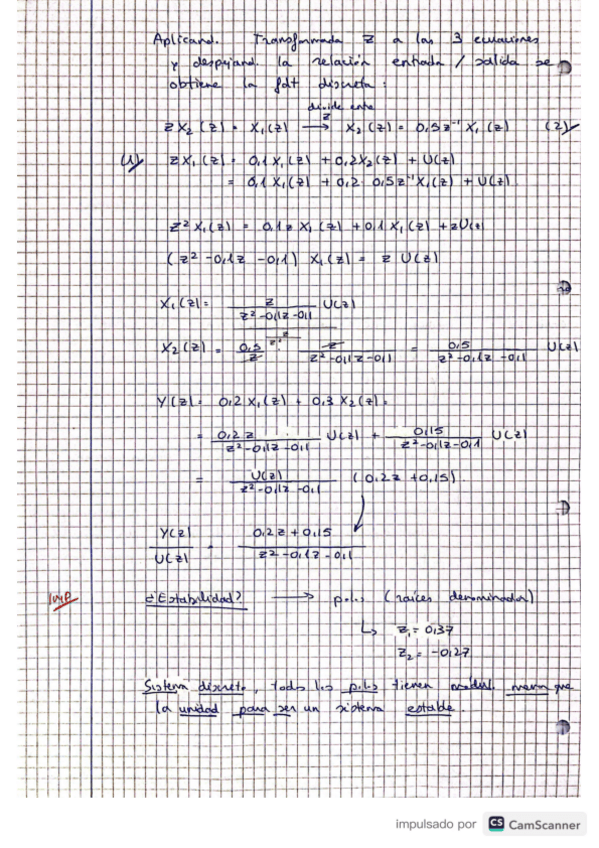 Aplicand. Transformada Z a las 3 ecuaciones
y despejand. la relación entrada / salida se
obtiene la fdt discreta :
divide entre
z
z X₂ (z) = X₁(z) → X₂ (z) = 0,5 z⁻¹ X₁ (z) (2)
(1) z X₁(z) = 0,1 X₁(z) + 0,2 X₂(z) + U(z)
= 0,1 X₁(z) + 0,2 · 0,5 z⁻¹ X₁(z) + U(z)
z² X₁(z) = 0,1 z X₁(z) + 0,1 X₁(z) + z U(z)
( z² - 0,1z - 0,1 ) X₁(z) = z U(z)
X₁(z) = z / (z² - 0,1z - 0,1) U(z)
X₂(z) = 0,5 / z · z / (z² - 0,1z - 0,1) = 0,5 / (z² - 0,1z - 0,1) U(z)
Y(z) = 0,2 X₁(z) + 0,3 X₂(z) =
= 0,2 z / (z² - 0,1z - 0,1) U(z) + 0,15 / (z² - 0,1z - 0,1) U(z)
= U(z) / (z² - 0,1z - 0,1) (0,2z + 0,15)
Y(z) / U(z) = (0,2z + 0,15) / (z² - 0,1z - 0,1)
Imp ¿Estabilidad? → polos (raíces denominador)
↳ z₁ = 0,37
z₂ = -0,27
Sistema discreto, todos los polos tienen módul. menor que
la unidad para ser un sistema estable.
impulsado por CS CamScanner